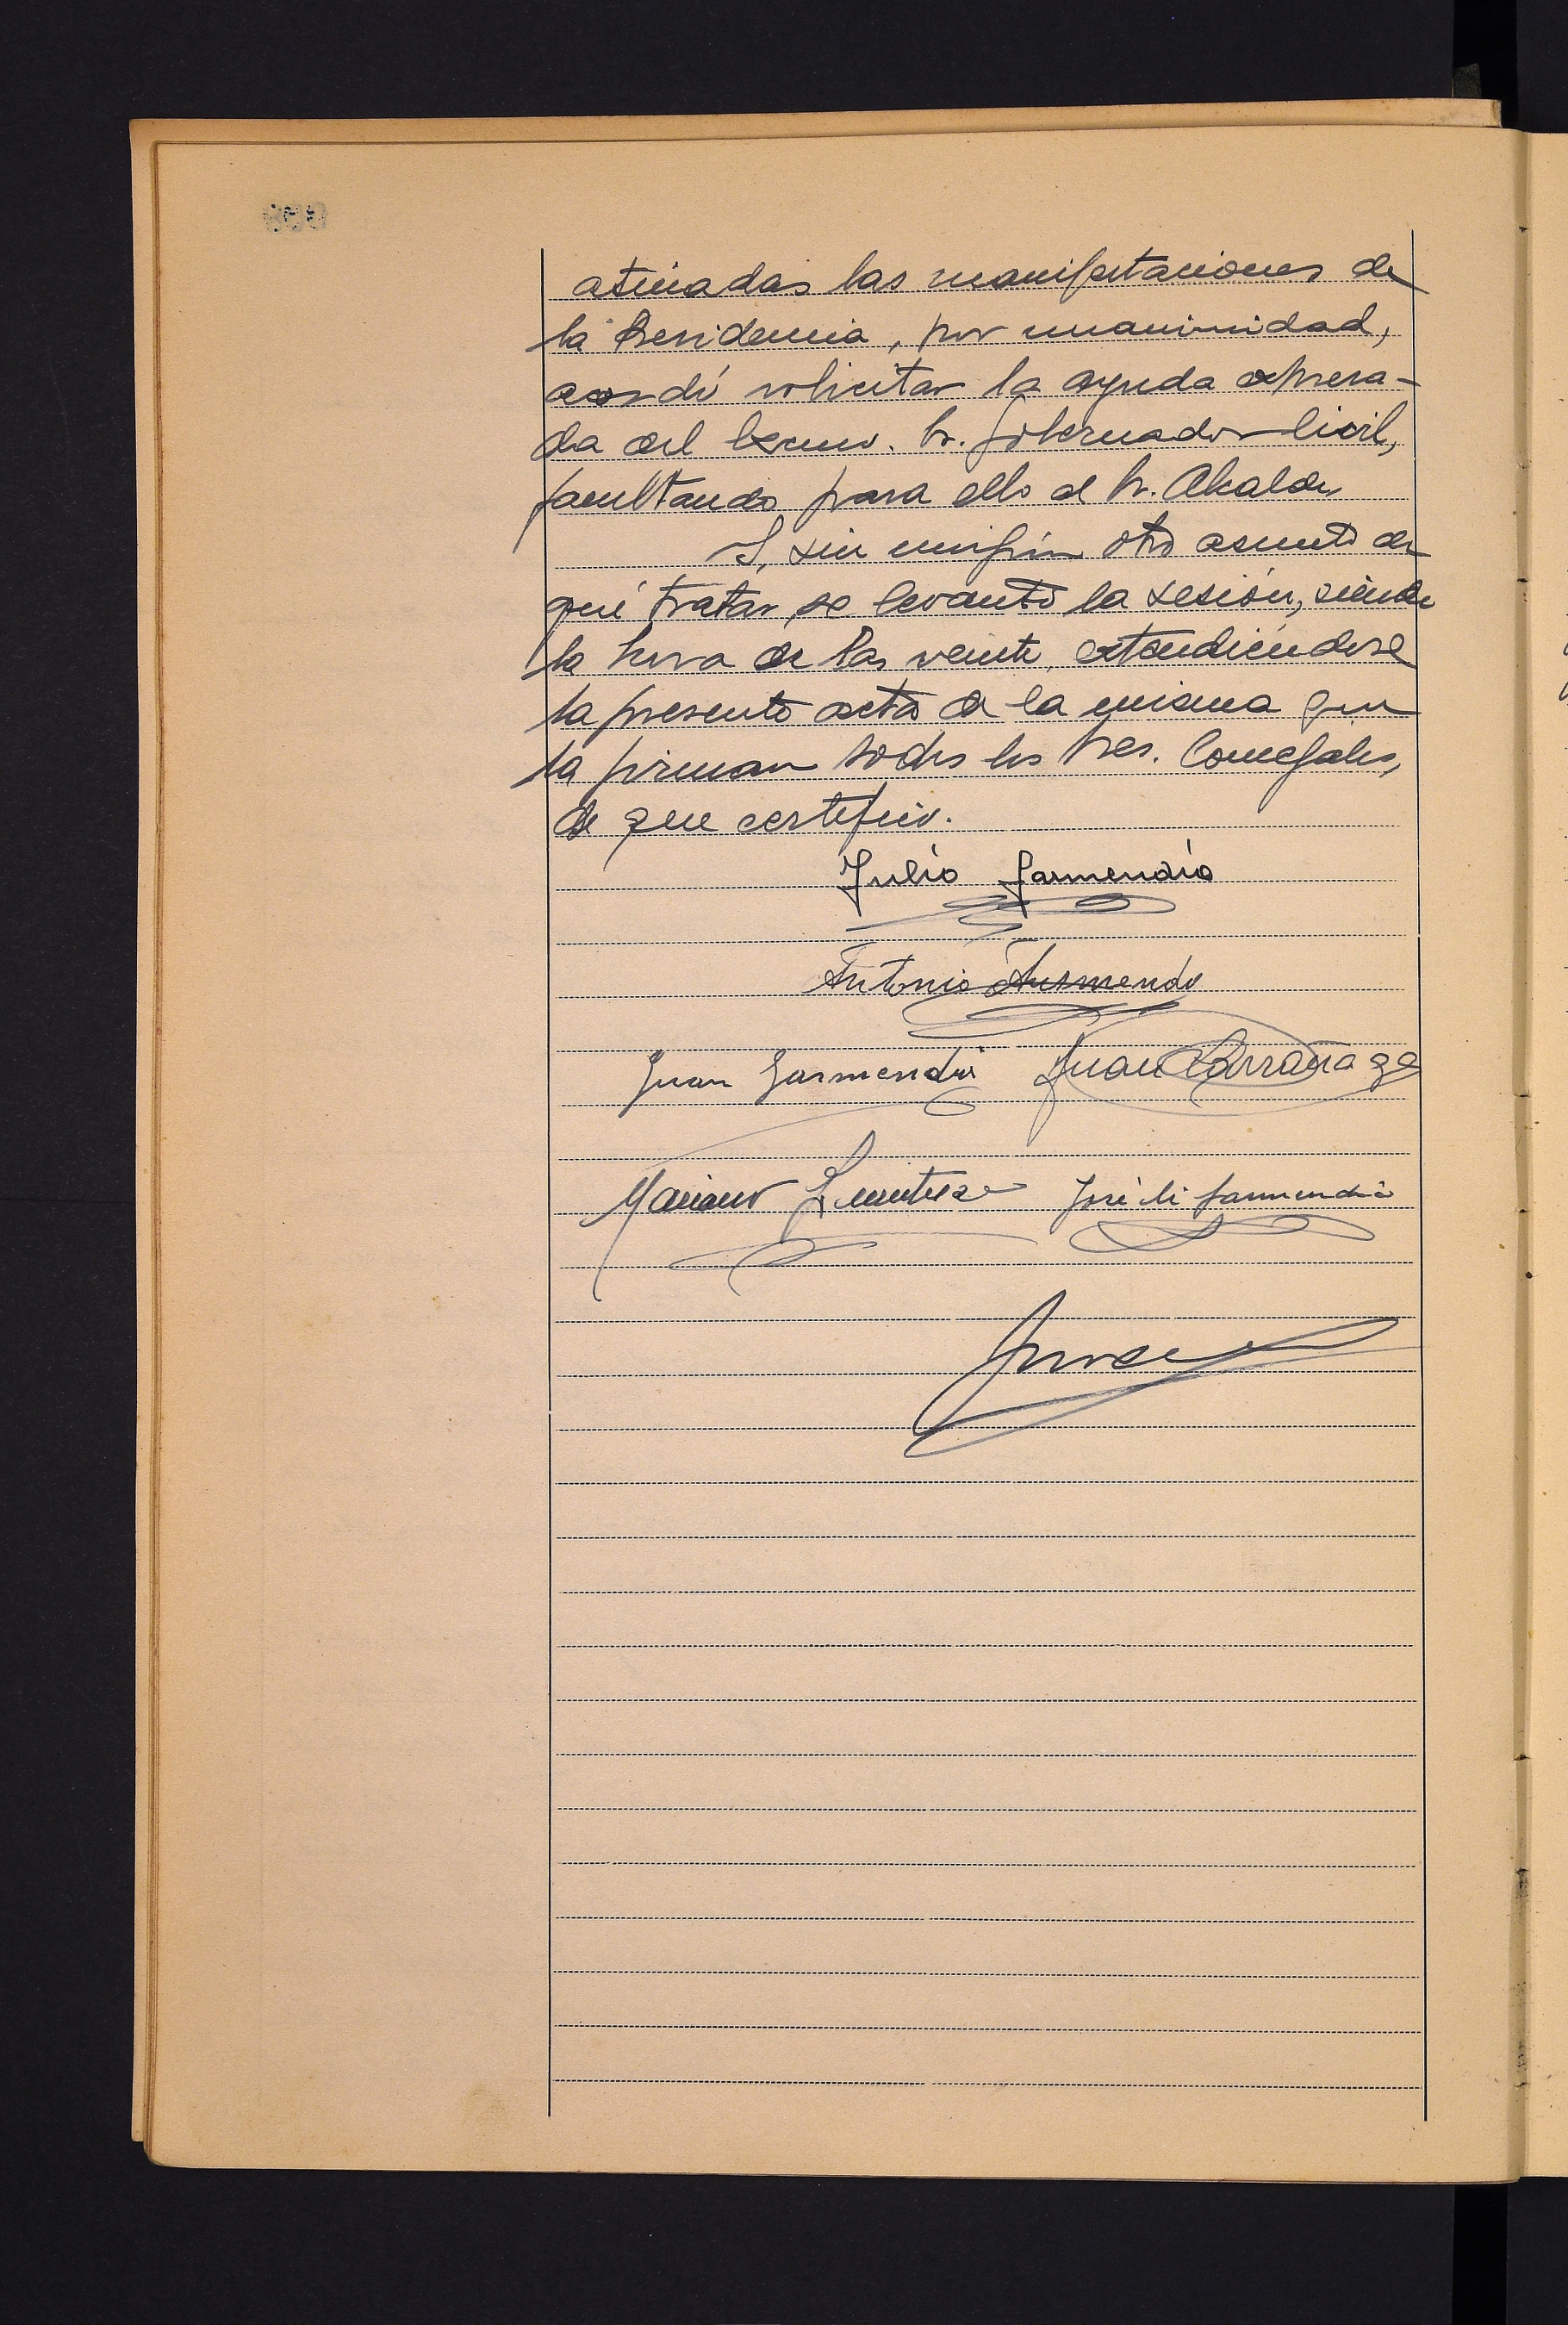 atinadas las manifestaciones de
la Presidencia, por unanimidad,
acordó solicitar la ayuda expresa-
da del Excmo. Sr. Gobernador Civil,
facultando para ello al Sr. Alcalde.
Y, sin ningún otro asunto de
qué tratar, se levantó la sesión, siendo
la hora de las veinte, extendiéndose
la presente acta de la misma que
la firman todos los Sres. Concejales,
de que certifico.
Julio Garmendia
Antonio
Juan Garmendia Juan Larrañaga
Mariano José Mª Garmendia